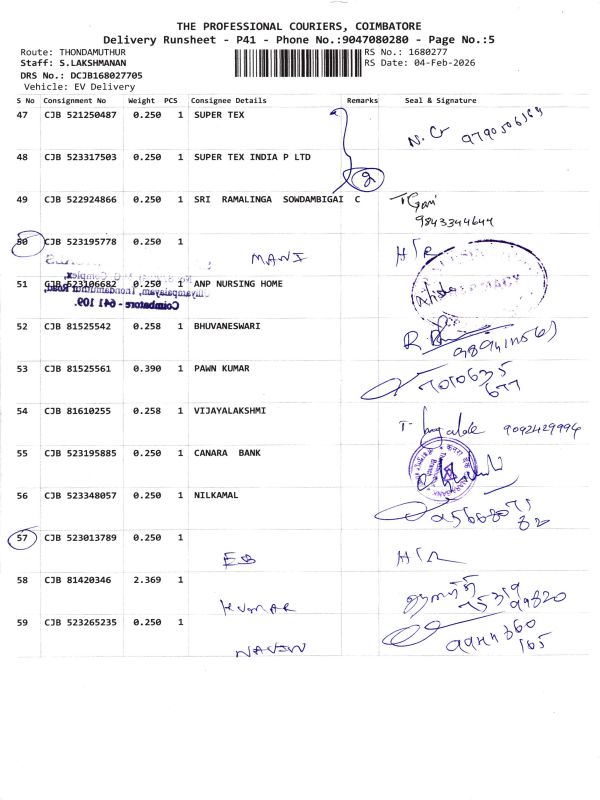 THE PROFESSIONAL COURIERS, COIMBATORE
Delivery Runsheet - P41 - Phone No.:9047080280 - Page No.:5
Route: THONDAMUTHUR RS No.: 1680277
Staff: S.LAKSHMANAN RS Date: 04-Feb-2026
DRS No.: DCJB168027705
Vehicle: EV Delivery
S No Consignment No Weight PCS Consignee Details Remarks Seal & Signature
47 CJB 521250487 0.250 1 SUPER TEX
48 CJB 523317503 0.250 1 SUPER TEX INDIA P LTD
2
49 CJB 522924866 0.250 1 SRI RAMALINGA SOWDAMBIGAI C
9843344644
50 CJB 523195778 0.250 1 MANI
51 CJB 523106682 0.250 1 ANP NURSING HOME
Coimbatore - 641 109.
52 CJB 81525542 0.258 1 BHUVANESWARI
53 CJB 81525561 0.390 1 PAWN KUMAR
7010635
677
54 CJB 81610255 0.258 1 VIJAYALAKSHMI
9092429994
55 CJB 523195885 0.250 1 CANARA BANK
56 CJB 523348057 0.250 1 NILKAMAL
57 CJB 523013789 0.250 1 EB
58 CJB 81420346 2.369 1 KUMAR
59 CJB 523265235 0.250 1 NAVIN